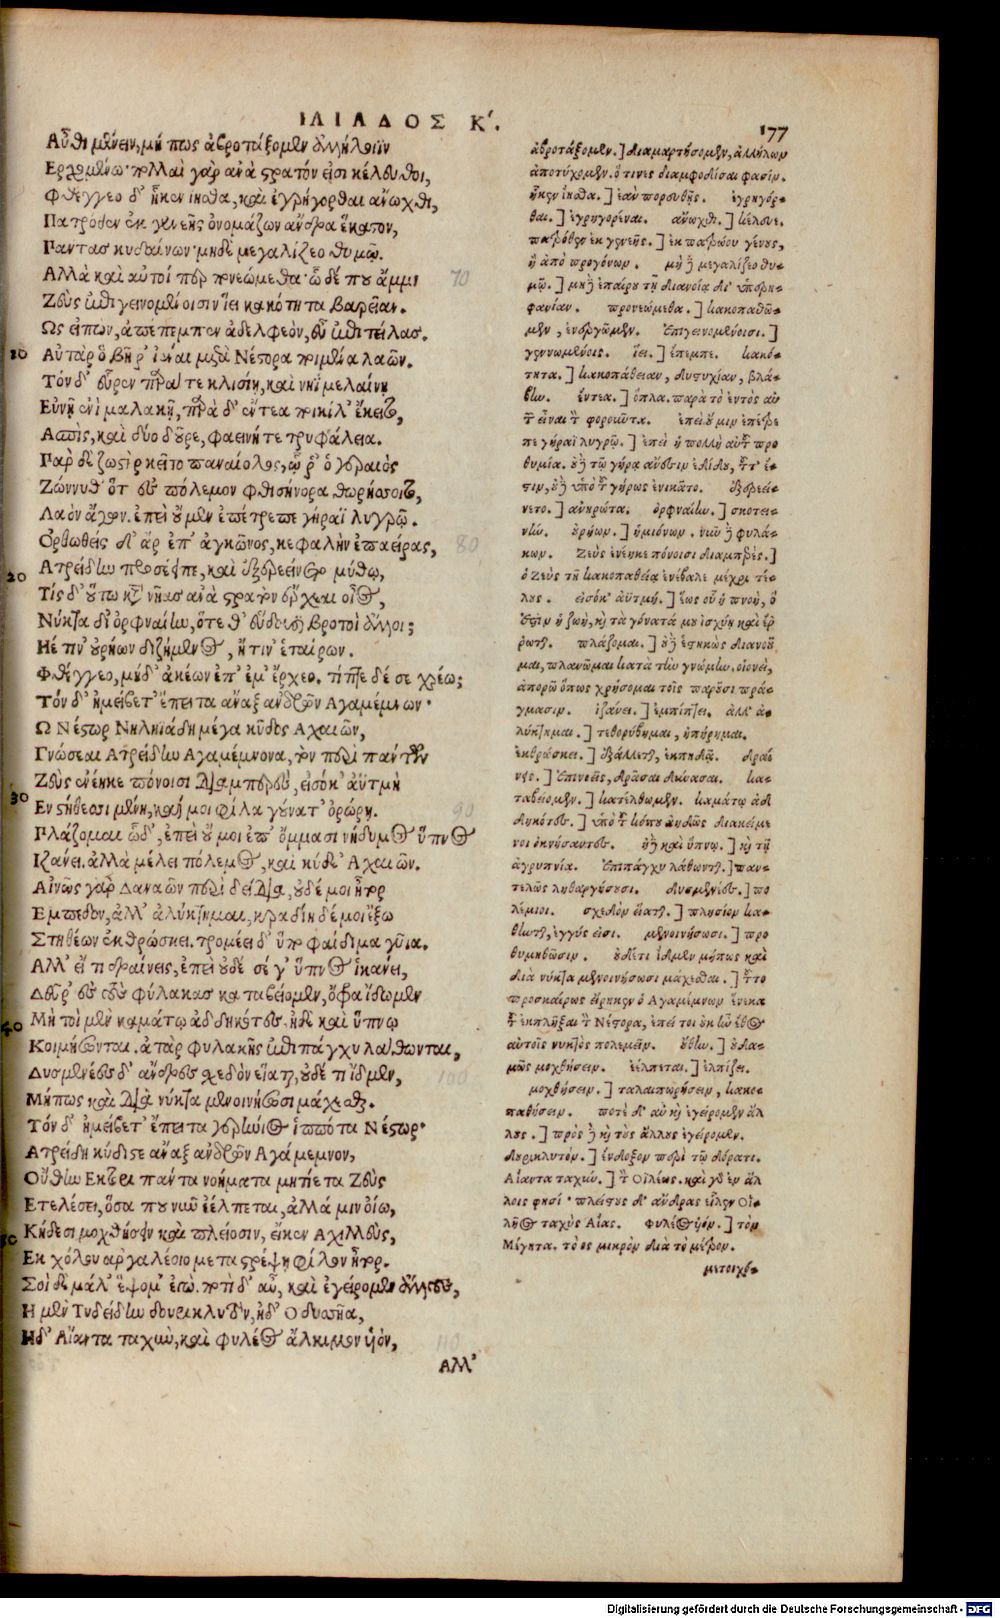 ΙΛΙΑΔΟΣ Κ'.
177
Αὖθι μένειν, μή πως ἀβροτάξομεν ἀλλήλοιϊν
Ερχομένω· πολλαὶ γὰρ ἀνὰ στρατόν εἰσι κέλευθοι,
Φθέγγεο δ' ᾗκεν ἴῃσθα, καὶ ἐγρήγορθαι ἄνωχθι,
Πατρόθεν ἐκ γενεῆς ὀνομάζων ἄνδρα ἕκαστον,
Πάντας κυδαίνων· μηδὲ μεγαλίζεο θυμῷ.
Αλλὰ καὶ αὐτοί περ πονεώμεθα· ὧδέ που ἄμμι 70
Ζεὺς ἐπὶ γεινομένοισιν ἵει κακότητα βαρεῖαν.
Ως εἰπὼν, ἀπέπεμπεν ἀδελφεὸν, εὖ ἐπιτείλας.
20 Αὐτὰρ ὁ βῆ ῥ' ἰέναι μετὰ Νέστορα ποιμένα λαῶν.
Τὸν δ' εὗρεν παρά τε κλισίῃ, καὶ νηῒ μελαίνῃ
Εὐνῇ ἐνὶ μαλακῇ, παρὰ δ' ἔντεα ποικίλ' ἔκειτο,
Ασπὶς, καὶ δύο δοῦρε, φαεινή τε τρυφάλεια.
Παρ δὲ ζωστὴρ κεῖτο παναίολος, ᾧ ῥ' ὁ γεραιὸς
Ζώννυθ' ὅτ' ἐς πόλεμον φθισήνορα θωρήσσοιτο,
Λαὸν ἄγων. ἐπεὶ οὐ μὲν ἐπέτρεπε γήραϊ λυγρῷ.
Ορθωθεὶς δ' ἄρ ἐπ' ἀγκῶνος, κεφαλὴν ἐπαείρας, 80
20 Ατρείδην προσέειπε, καὶ ἐξερεείνετο μύθῳ,
Τίς δ' οὗτω κατὰ νῆας ἀνὰ στρατὸν ἔρχεαι οἶος,
Νύκτα δι' ὀρφναίην, ὅτε θ' εὕδουσι βροτοὶ ἄλλοι;
Ηέ τιν' οὐρήων διζήμενος, ἤ τιν' ἑταίρων.
Φθέγγεο, μηδ' ἀκέων ἐπ' ἐμ' ἔρχεο. τίπτε δέ σε χρέω;
Τὸν δ' ἠμείβετ' ἔπειτα ἄναξ ἀνδρῶν Αγαμέμνων·
Ω Νέστορ Νηληϊάδη μέγα κῦδος Αχαιῶν,
Γνώσεαι Ατρείδην Αγαμέμνονα, τὸν περὶ πάντων
Ζεὺς ἐνέηκε πόνοισι διαμπερὲς, εἰσόκ' ἀϋτμὴ
30 Εν στήθεσσι μένῃ, καί μοι φίλα γούνατ' ὀρώρῃ.
Πλάζομαι ὧδ', ἐπεὶ οὔ μοι ἐπ' ὄμμασι νήδυμος ὕπνος 90
Ιζάνει. ἀλλὰ μέλει πόλεμος, καὶ κήδε' Αχαιῶν.
Αἰνῶς γὰρ Δαναῶν περὶ δείδια, οὐδέ μοι ἦτορ
Εμπεδον, ἀλλ' ἀλύκτημαι, κραδίη δέ μοι ἔξω
Στηθέων ἐκθρώσκει. τρομέει δ' ὑπὸ φαίδιμα γυῖα.
Αλλ' εἴ τι δραίνεις, ἐπεὶ οὐδέ σέ γ' ὕπνος ἱκάνει,
Δεῦρ' ἐς τοὺς φύλακας καταβείομεν, ὄφρα ἴδωμεν
40 Μὴ τοὶ μὲν καμάτῳ ἀδδηκότες, ἠδὲ καὶ ὕπνῳ
Κοιμήσωνται. ἀτὰρ φυλακῆς ἐπιπάγχυ λάθωνται,
Δυσμενέες δ' ἄνδρες σχεδὸν εἵαται, οὐδέ τι ἴδμεν, 100
Μήπως καὶ διὰ νύκτα μενοινήσωσι μάχεσθαι.
Τὸν δ' ἠμείβετ' ἔπειτα γερήνιος ἱππότα Νέστωρ·
Ατρείδη κύδιστε ἄναξ ἀνδρῶν Αγάμεμνον,
Οὔθην Εκτορι πάντα νοήματα μητίετα Ζεὺς
Εκτελέσει, ὅσα που νῦν ἐέλπεται, ἀλλά μιν οἴω,
50 Κήδεσι μοχθήσειν καὶ πλείοσιν, εἴκεν Αχιλλεὺς,
Εκ χόλου ἀργαλέοιο μεταστρέψῃ φίλον ἦτορ.
Σοὶ δὲ μάλ' ἕψομ' ἐγώ. ποτὶ δ' αὖ, καὶ ἐγείρομεν ἄλλους,
Η μὲν Τυδείδην δουρικλυτὸν, ἠδ' Οδυσῆα,
Ηδ' Αἴαντα ταχὺν, καὶ Φυλέος ἄλκιμον υἱόν, 110
Αλλ'
ἀβροτάξομεν.] διαμαρτήσομεν, ἀλλήλων
ἀποτύχωμεν. ὅ τινες διαμφοδίσαι φασίν.
ᾗκεν ἴῃσθα.] ἐὰν πορευθῇς. ἐγρηγόρ-
θαι.] ἐγρηγορέναι. ἄνωχθι.] κέλευε.
πατρόθεν ἐκ γενεῆς.] ἐκ πατρῴου γένους,
ἢ ἀπὸ προγόνων. μὴ δὲ μεγαλίζεο θυ-
μῷ.] μὴ δὲ ἐπαίρου τῇ διανοίᾳ δι' ὑπερη-
φανίαν. πονεώμεθα.] κακοπαθῶ-
μεν, ἐνεργῶμεν. Ἐπιγεινομένοισι.]
γεννωμένοις. ἵει.] ἔπεμπε. κακό-
τητα.] κακοπάθειαν, δυστυχίαν, βλά-
βην. ἔντεα.] ὅπλα. παρὰ τὸ ἐντὸς αὐ
τῶν εἶναι τὸν φοροῦντα. ἐπεὶ οὔ μιν ἐπέτρε
πε γήραϊ λυγρῷ.] ἐπεὶ ἡ πολλὴ αὐτοῦ προ
θυμία. οὐ τῷ γήρᾳ ἄνεσιν ἐδίδου, τοῦτ' ἔ-
στιν, οὐχ ὑπὸ τοῦ γήρως ἐνικᾶτο. ἐξερεεί-
νετο.] ἀνηρώτα. ὀρφναίην.] σκοτει-
νήν. οὐρήων.] ἡμιόνων. νῦν δὲ φυλά-
κων. Ζεὺς ἐνέηκε πόνοισι διαμπερὲς.]
ὁ Ζεὺς τῇ κακοπαθείᾳ ἐνέβαλε μέχρι τέ-
λους. εἰσόκ' ἀϋτμή.] ἕως οὗ ἡ πνοὴ, ὅ
ἐστιν ἡ ζωὴ, καὶ τὰ γόνατά μου ἰσχύῃ καὶ ἔρ
ρωται. πλάζομαι.] οὐχ ἑστηκὼς διανοοῦ
μαι, πλανῶμαι κατὰ τὴν γνώμην. οἱονεὶ,
ἀπορῶ ὅπως χρήσομαι τοῖς παροῦσι πρά-
γμασιν. ἱζάνει.] ἐμπίπτει. ἀλλ' ἀ-
λύκτημαι.] τεθορύβημαι, ἠπόρημαι.
ἐκθρώσκει.] ἐξάλλεται, ἐκπηδᾷ. δραί
νεις.] Ἐπινοεῖς, δρᾶσαι δύνασαι. κα-
ταβείομεν.] κατέλθωμεν. καμάτῳ ἀδ
δηκότες.] ὑπὸ τοῦ κόπου ἀηδῶς διακείμε
νοι ὀκνήσαντες. ἠδὲ καὶ ὕπνῳ.] καὶ τῇ
ἀγρυπνίᾳ. Ἐπιπάγχυ λάθωνται.] παν-
τελῶς ληθαργήσουσι. δυσμενέες.] πο
λέμιοι. σχεδὸν εἵαται.] πλησίον κά-
θηνται, ἐγγύς εἰσι. μενοινήσωσι.] προ
θυμηθῶσιν. οὐδέτι ἴδμεν μήπως καὶ
διὰ νύκτα μενοινήσωσι μάχεσθαι.] τοῦτο
προσκαίρως εἴρηκεν ὁ Αγαμέμνων ἕνεκα
τοῦ ἐκπλῆξαι τὸν Νέστορα, ἐπεί τοι οὐκ ἦν ἔθος
αὐτοῖς νυκτὸς πολεμεῖν. οὔθην.] οὐδα-
μῶς μοχθήσειν. ἐέλπεται.] ἐλπίζει.
μοχθήσειν.] ταλαιπωρήσειν, κακο-
παθήσειν. ποτὶ δ' αὖ καὶ ἐγείρομεν ἄλ
λους.] πρὸς δὲ καὶ τοὺς ἄλλους ἐγείρομεν.
δουρικλυτόν.] ἔνδοξον περὶ τῷ δόρατι.
Αἴαντα ταχύν.] τὸν Οἰλέως. καὶ γὰρ ἐν ἄλ
λοις φησί· πλείστους δ' ἄνδρας εἷλεν Οἰ-
λῆος ταχὺς Αἴας. Φυλέος υἱόν.] τὸν
Μέγητα. τὸ ος μικρὸν διὰ τὸ μέτρον.
μετοιχό-
Digitalisierung gefördert durch die Deutsche Forschungsgemeinschaft - DFG